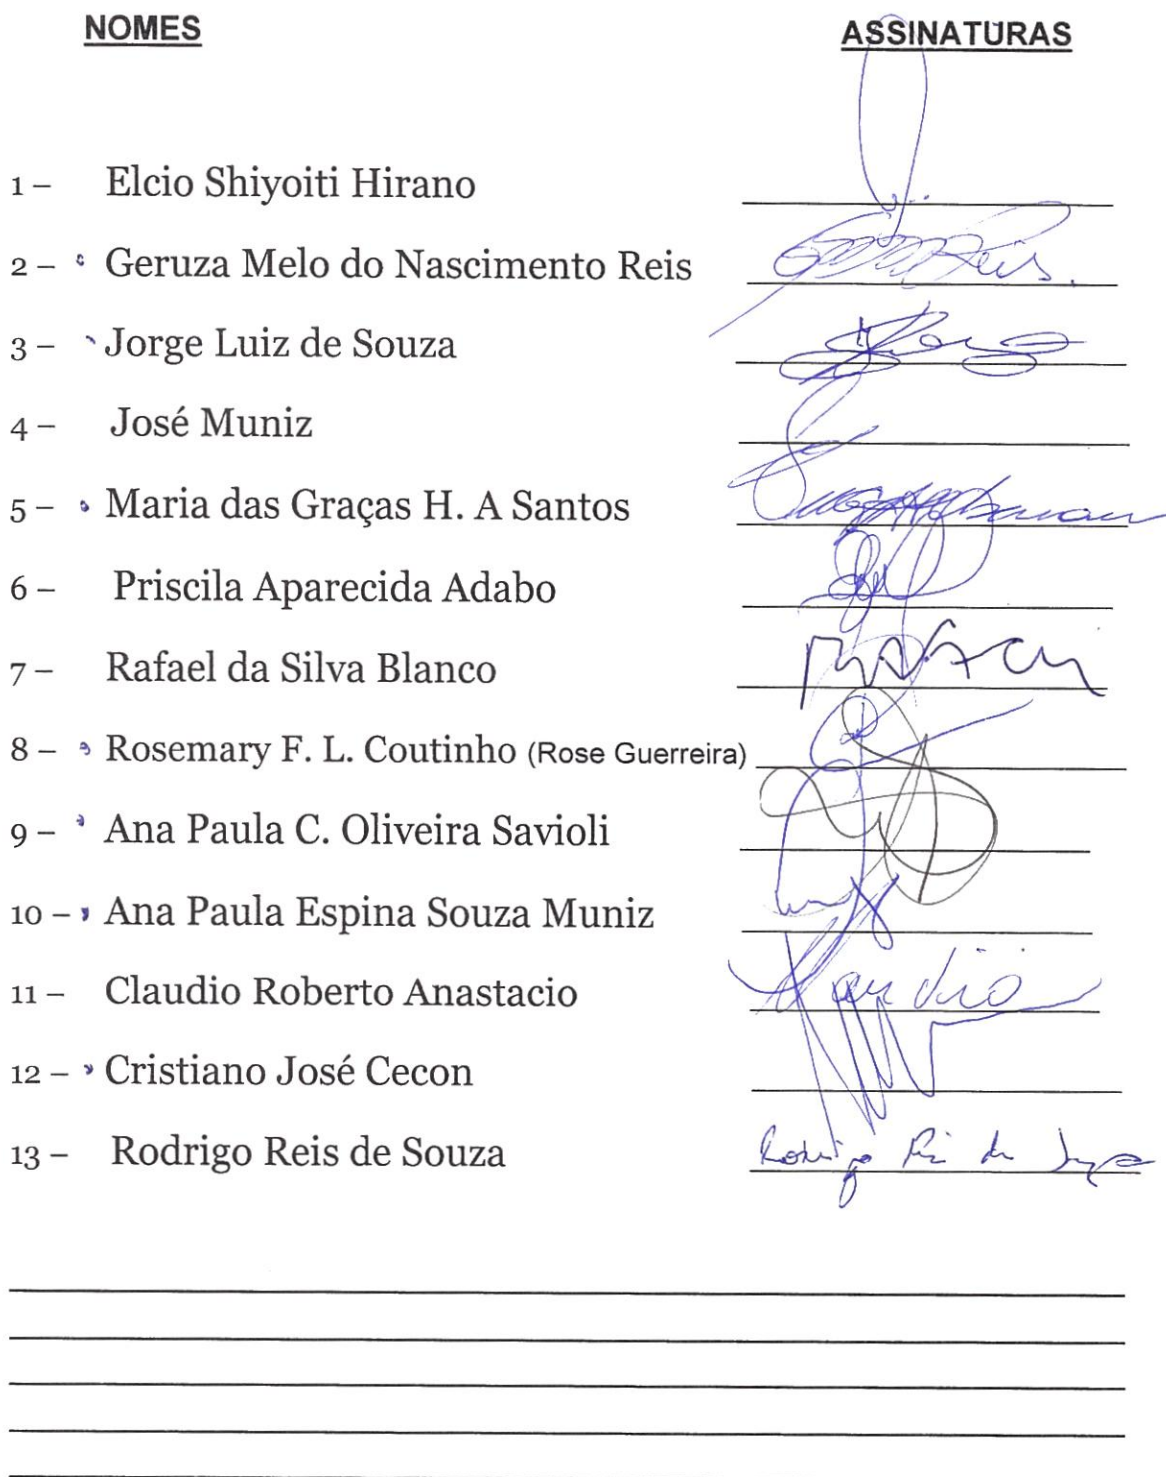 NOMES ASSINATURAS
1 – Elcio Shiyoiti Hirano
2 – Geruza Melo do Nascimento Reis
3 – Jorge Luiz de Souza
4 – José Muniz
5 – Maria das Graças H. A Santos
6 – Priscila Aparecida Adabo
7 – Rafael da Silva Blanco
8 – Rosemary F. L. Coutinho (Rose Guerreira)
9 – Ana Paula C. Oliveira Savioli
10 – Ana Paula Espina Souza Muniz
11 – Claudio Roberto Anastacio Claudio
12 – Cristiano José Cecon
13 – Rodrigo Reis de Souza Rodrigo